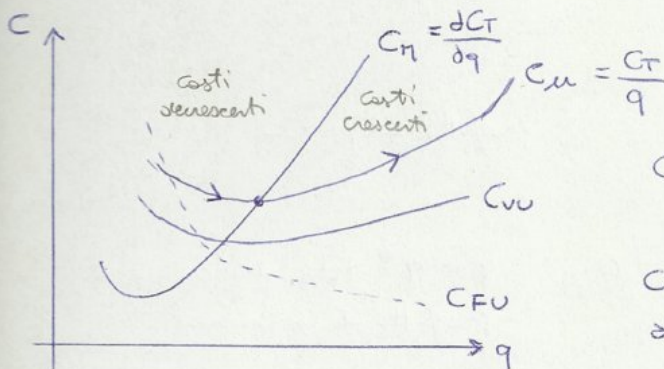 C
C_M = dC_T/dq
costi
decrescenti
costi
crescenti
C_u = C_T/q
C
C_VU
C
C_FU
q